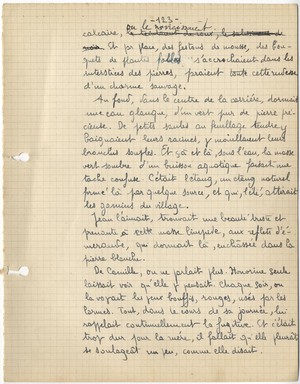 -123-
ou le rossignol
calcaire,
Et par place, des festons de mousse, des bou-
quets de plantes folles s'accrochaient dans les
interstices des pierres, paraient toute cette rudesse
d'un charme sauvage.
Au fond, dans le centre de la carrière, dormait
une eau glauque, d'un vert pur de pierre pré-
cieuse. De petits saules au feuillage tendre y
baignaient leurs racines, y mouillaient leurs
branches souples. Et çà et là, sous l'eau, la masse
vert sombre d'un buisson aquatique faisait une
tache confuse. C'était l'étang, un étang naturel
formé là par quelque source, et qui, l'été, attirait
les gamins du village.
Jean l'aimait, trouvait une beauté triste et
prenante à cette masse limpide, aux reflets d'é-
meraude, qui dormait là, enchâssée dans la
pierre blanche.
De Camille, on ne parlait plus. Honorine seule
laissait voir qu'elle y pensait. Chaque soir, on
la voyait les yeux bouffis, rouges, usés par les
larmes. Tout, dans le cours de sa journée, lui
rappelait continuellement la fugitive. Et c'était
trop dur pour la mère, il fallait qu'elle pleurât,
se soulageât un peu, comme elle disait.